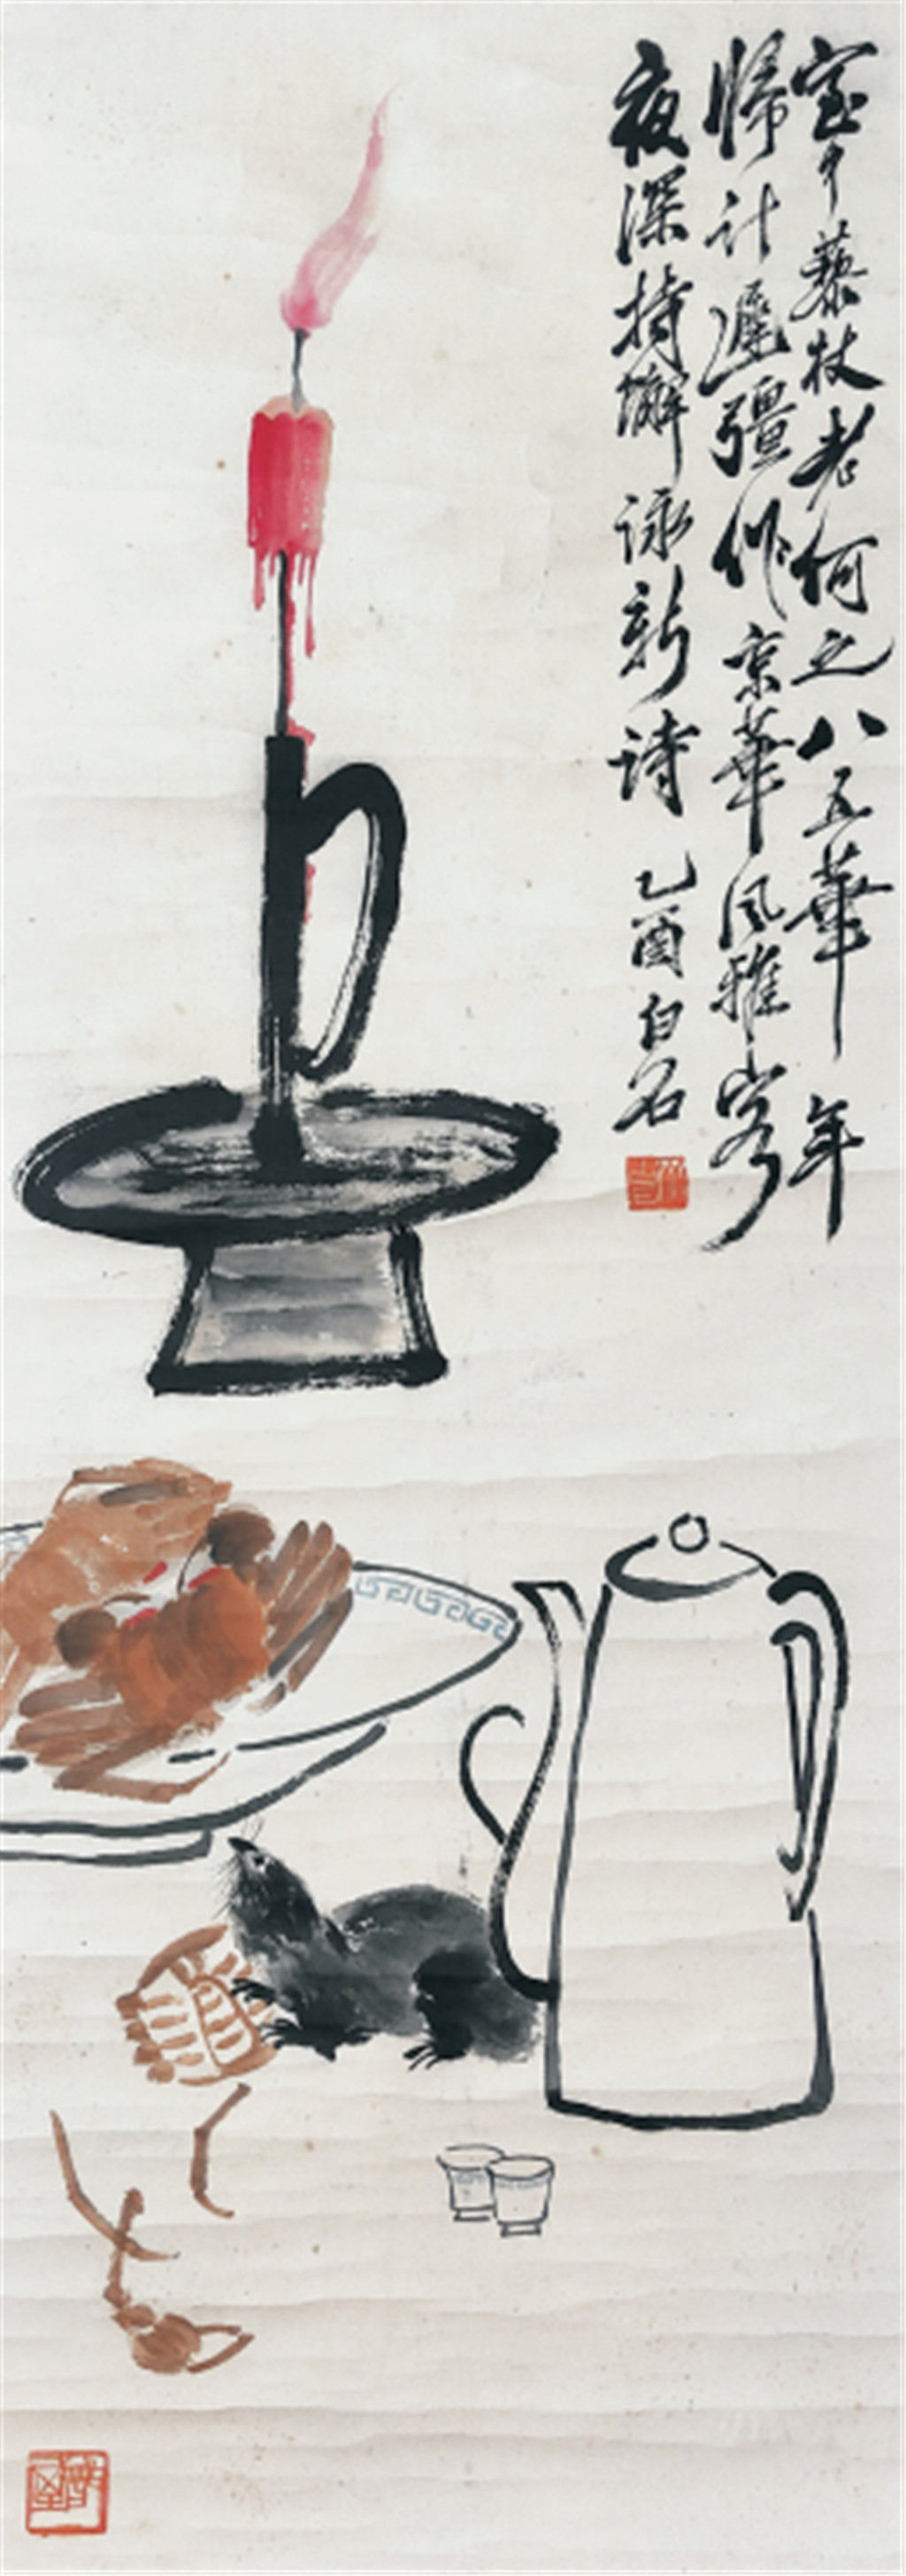 藜杖老何之八五華年
歸計遲彊作京華風雅客
夜深持蠏詠新詩 乙酉白石